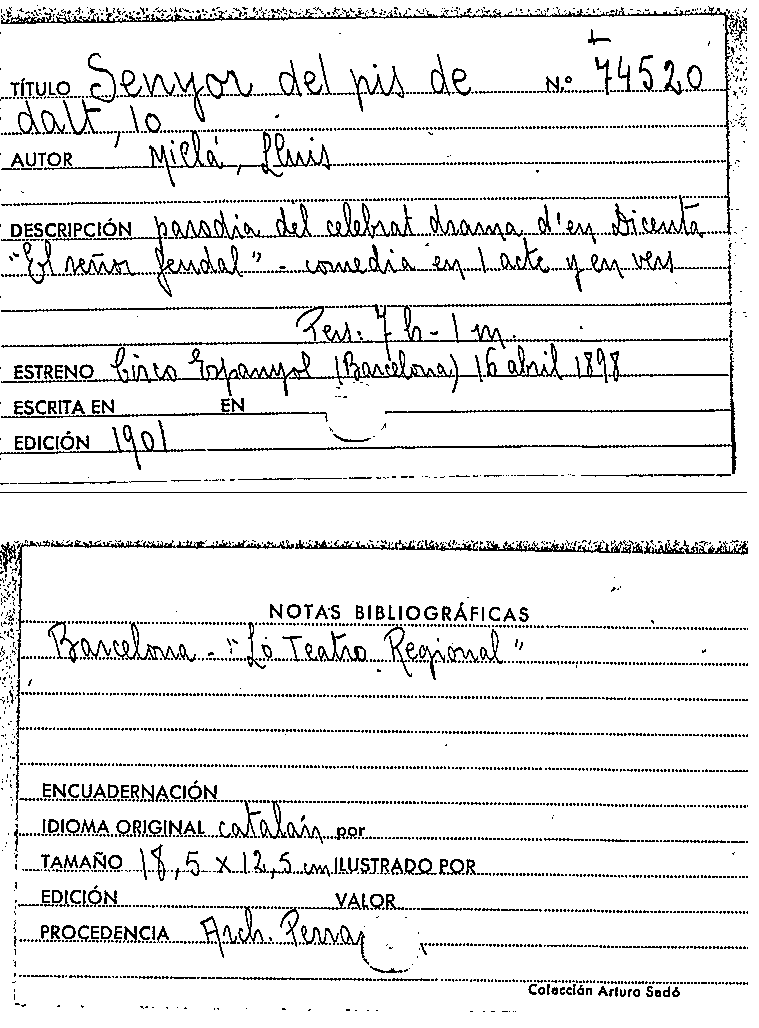 TÍTULO Senyor del pis de Nº 74520
dalt, lo
AUTOR Millá, Lluis
DESCRIPCIÓN parodia del celebrat drama d'en Dicenta
"El señor feudal" - comedia en 1 acte y en vers
Pers: 7 h - 1 m.
ESTRENO Circo Espanyol (Barcelona) 16 abril 1898
ESCRITA EN EN
EDICIÓN 1901
NOTAS BIBLIOGRÁFICAS
Barcelona - "Lo Teatro Regional"
ENCUADERNACIÓN
IDIOMA ORIGINAL catalán por
TAMAÑO 18,5 x 12,5 cm ILUSTRADO POR
EDICIÓN VALOR
PROCEDENCIA Arch.
Colección Arturo Sedó